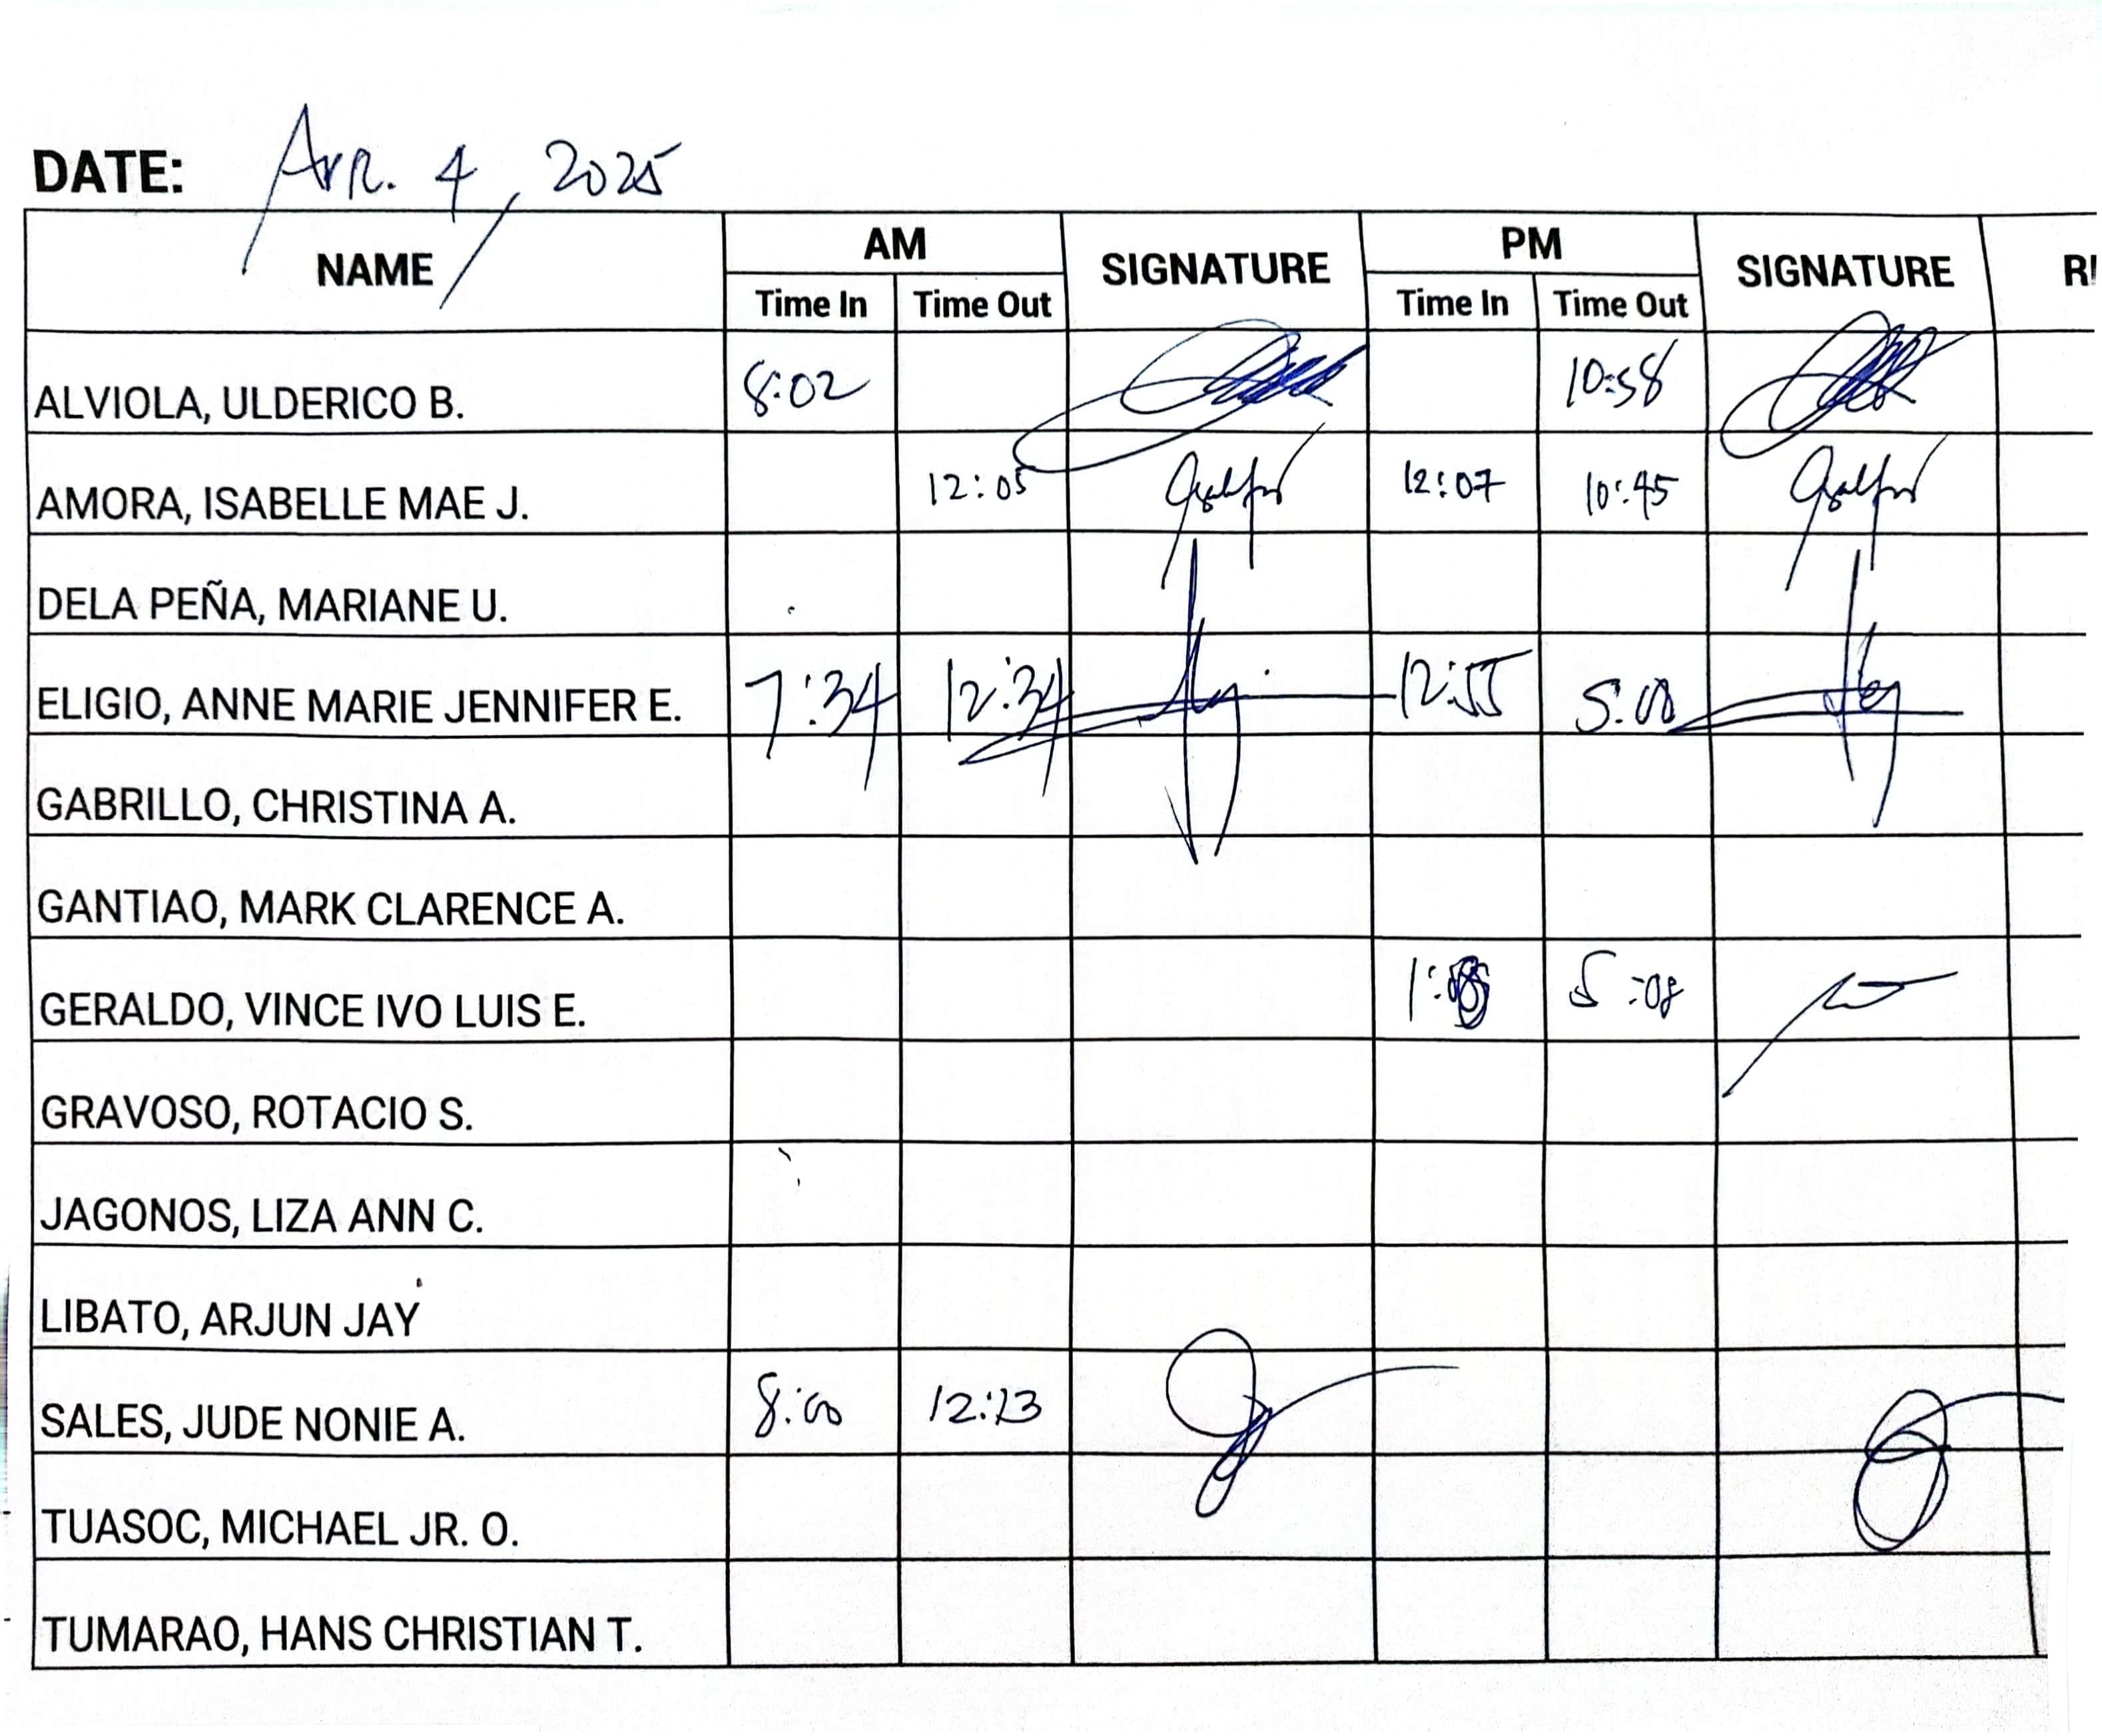 DATE: Apr. 4, 2025
NAME AM SIGNATURE PM SIGNATURE
Time In Time Out Time In Time Out
ALVIOLA, ULDERICO B. 8:02 10:58
AMORA, ISABELLE MAE J. 12:05 12:07 10:45
DELA PEÑA, MARIANE U.
ELIGIO, ANNE MARIE JENNIFER E. 7:34 12:34 12:55 5:00
GABRILLO, CHRISTINA A.
GANTIAO, MARK CLARENCE A.
GERALDO, VINCE IVO LUIS E. 5:08
GRAVOSO, ROTACIO S.
JAGONOS, LIZA ANN C.
LIBATO, ARJUN JAY
SALES, JUDE NONIE A. 8:00 12:23
TUASOC, MICHAEL JR. O.
TUMARAO, HANS CHRISTIAN T.